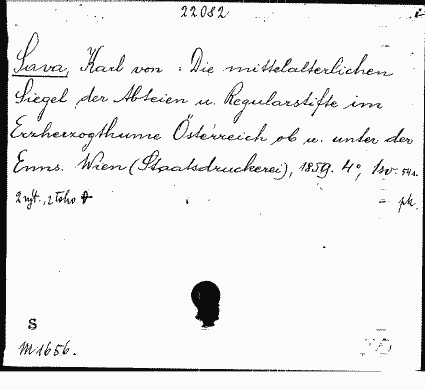 22082
Sava, Karl von: Die mittelalterlichen
Siegel der Abteien u. Regularstifte im
Erzherzogthume Österreich ob u. unter der
Enns. Wien (Staatsdruckerei), 1859. 4°,
S
M 1656.